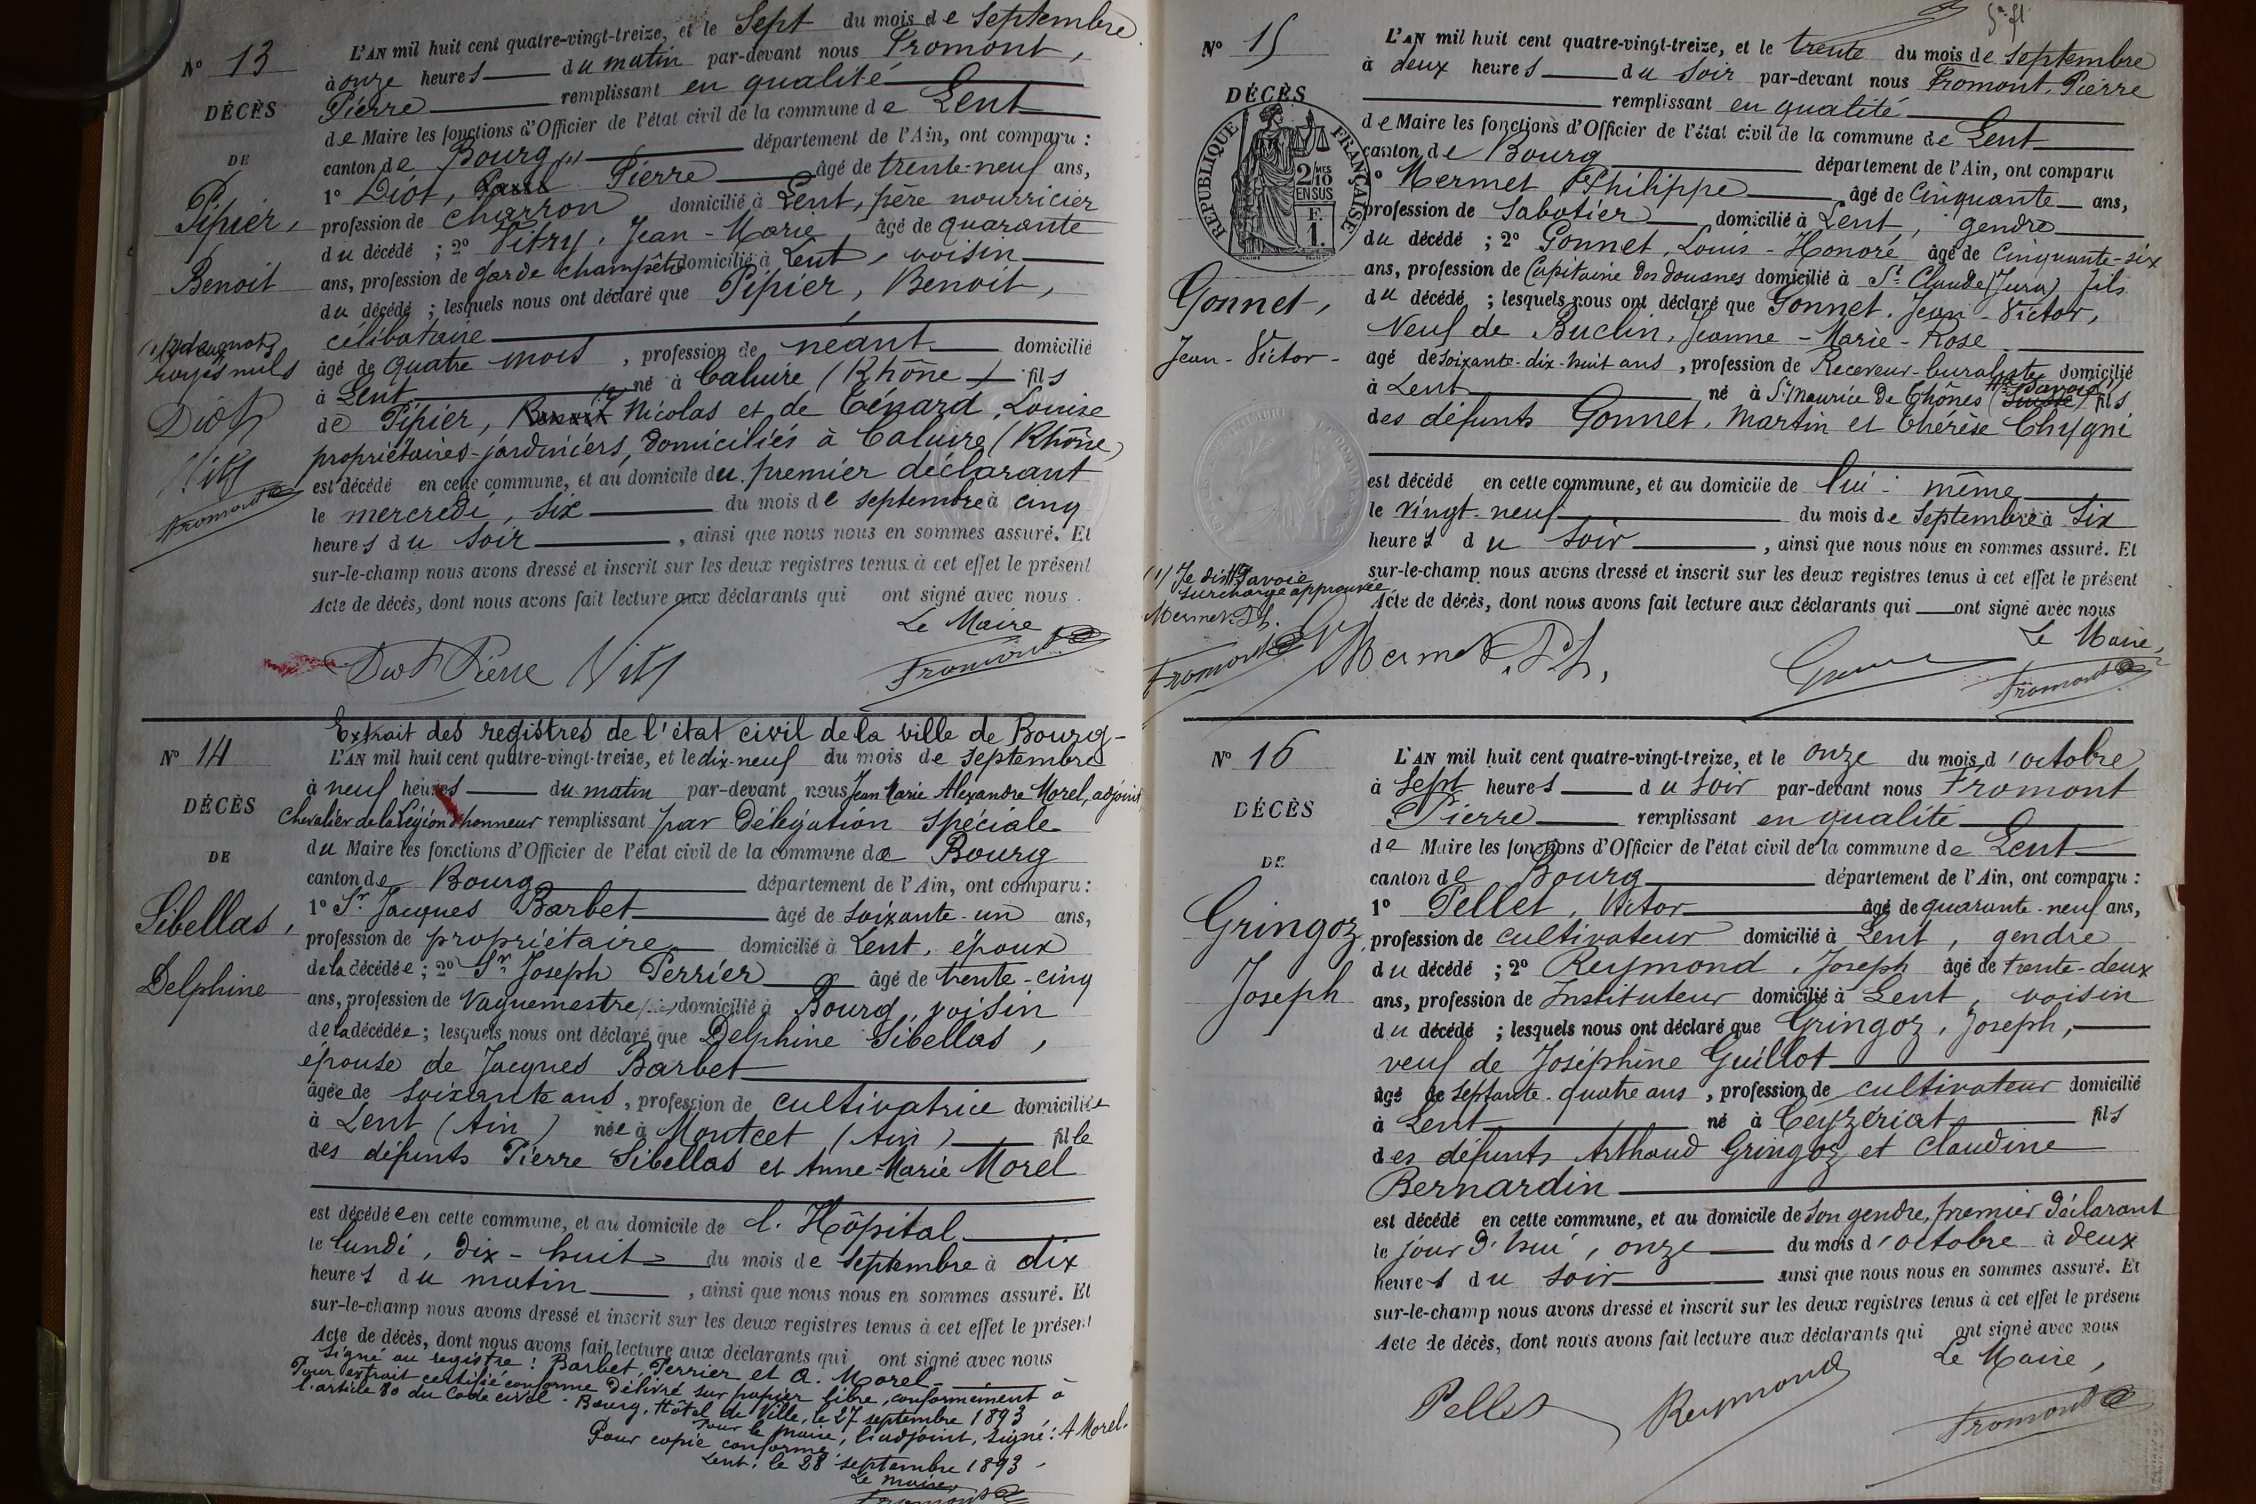 N° 13
DÉCÈS
DE
Pipier,
Benoit
(1)(2) deux mots
rayés nuls
Diot P
Vitry
Fromont
L'AN mil huit cent quatre-vingt-treize, et le sept du mois de septembre
à onze heures du matin par-devant nous Fromont,
Pierre remplissant en qualité
de Maire les fonctions d'Officier de l'état civil de la commune de Lent
canton de Bourg département de l'Ain, ont comparu :
1° Diot, Pierre âgé de trente-neuf ans,
profession de charron domicilié à Lent, père nourricier
du décédé ; 2° Vitry, Jean-Marie, âgé de quarante
ans, profession de garde champêtre domicilié à Lent, voisin
du décédé ; lesquels nous ont déclaré que Pipier, Benoit,
célibataire
âgé de quatre mois, profession de néant domicilié
à Lent né à Caluire (Rhône) fils
de Pipier, Benoit Nicolas et de Ténard, Louise
propriétaires-jardiniers, domiciliés à Caluire (Rhône)
est décédé en cette commune, et au domicile du premier déclarant
le mercredi, six du mois de septembre à cinq
heures du soir, ainsi que nous nous en sommes assuré. Et
sur-le-champ nous avons dressé et inscrit sur les deux registres tenus à cet effet le présent
Acte de décès, dont nous avons fait lecture aux déclarants qui ont signé avec nous.
Le Maire
Diot Pierre Vitry Fromont
N° 14
DÉCÈS
DE
Sibellas,
Delphine
Extrait des registres de l'état civil de la ville de Bourg-
L'AN mil huit cent quatre-vingt-treize, et le dix-neuf du mois de septembre
à neuf heures du matin par-devant nous Jean Marie Alexandre Morel, adjoint
Chevalier de la Légion d'honneur remplissant par Délégation spéciale
du Maire les fonctions d'Officier de l'état civil de la commune de Bourg
canton de Bourg département de l'Ain, ont comparu :
1° Sr. Jacques Barbet âgé de soixante-un ans,
profession de propriétaire domicilié à Lent, époux
de la décédée ; 2° Sr Joseph Perrier âgé de trente-cinq
ans, profession de Vaguemestre domicilié à Bourg, voisin
de la décédée ; lesquels nous ont déclaré que Delphine Sibellas,
épouse de Jacques Barbet
âgée de soixante ans, profession de cultivatrice domiciliée
à Lent (Ain) née à Montcet (Ain) fille
des défunts Pierre Sibellas et Anne-Marie Morel
est décédée en cette commune, et au domicile de l'Hôpital
le lundi, dix-huit du mois de septembre à dix
heures du matin, ainsi que nous nous en sommes assuré. Et
sur-le-champ nous avons dressé et inscrit sur les deux registres tenus à cet effet le présent
Acte de décès, dont nous avons fait lecture aux déclarants qui ont signé avec nous
Signé au registre : Barbet, Perrier et A. Morel
Pour extrait certifié conforme Délivré sur papier libre, conformément à
l'article 80 du Code civil - Bourg, Hôtel de Ville, le 27 septembre 1893
Pour le maire, l'adjoint, signé : A Morel.
Pour copie conforme
Lent, le 28 septembre 1893
Le maire,
Fromont
N° 15
DÉCÈS
RÉPUBLIQUE FRANÇAISE
2/10 MES
EN SUS
F.
1.
Gonnet,
Jean-Victor-
(1) Je dis Hte Savoie
surcharge approuvée
Mermet Ph.
Fromont
L'AN mil huit cent quatre-vingt-treize, et le trente du mois de septembre
à deux heures du soir par-devant nous Fromont, Pierre
remplissant en qualité
de Maire les fonctions d'Officier de l'état civil de la commune de Lent
canton de Bourg département de l'Ain, ont comparu
1° Mermet Philippe âgé de cinquante ans,
profession de sabotier domicilié à Lent, gendre
du décédé ; 2° Gonnet, Louis-Honoré âgé de cinquante-six
ans, profession de Capitaine des douanes domicilié à St Claude (Jura) fils
du décédé ; lesquels nous ont déclaré que Gonnet, Jean-Victor,
Veuf de Buclin, Jeanne-Marie-Rose
âgé de soixante-dix-huit ans, profession de Receveur-buraliste domicilié
à Lent né à St Maurice de Thônes (Suisse Hte Savoie) fils
des défunts Gonnet, Martin et Thérèse Chygni
est décédé en cette commune, et au domicile de lui-même
le vingt-neuf du mois de septembre à six
heures du soir, ainsi que nous nous en sommes assuré. Et
sur-le-champ nous avons dressé et inscrit sur les deux registres tenus à cet effet le présent
Acte de décès, dont nous avons fait lecture aux déclarants qui ont signé avec nous
Le Maire,
Mermet Ph. Fromont
N° 16
DÉCÈS
DE
Gringoz
Joseph
L'AN mil huit cent quatre-vingt-treize, et le onze du mois d'octobre
à sept heures du soir par-devant nous Fromont
Pierre remplissant en qualité
de Maire les fonctions d'Officier de l'état civil de la commune de Lent
canton de Bourg département de l'Ain, ont comparu :
1° Pellet, Victor âgé de quarante-neuf ans,
profession de cultivateur domicilié à Lent, gendre
du décédé ; 2° Reymond, Joseph âgé de trente-deux
ans, profession de Instituteur domicilié à Lent, voisin
du décédé ; lesquels nous ont déclaré que Gringoz, Joseph,
veuf de Joséphine Guillot
âgé de septante-quatre ans, profession de cultivateur domicilié
à Lent né à Ceyzériat fils
des défunts Arthaud Gringoz et Claudine
Bernardin
est décédé en cette commune, et au domicile de son gendre, premier déclarant
le jour d'hui, onze du mois d'octobre à deux
heures du soir ainsi que nous nous en sommes assuré. Et
sur-le-champ nous avons dressé et inscrit sur les deux registres tenus à cet effet le présent
Acte de décès, dont nous avons fait lecture aux déclarants qui ont signé avec nous
Le Maire,
Pellet Reymond Fromont